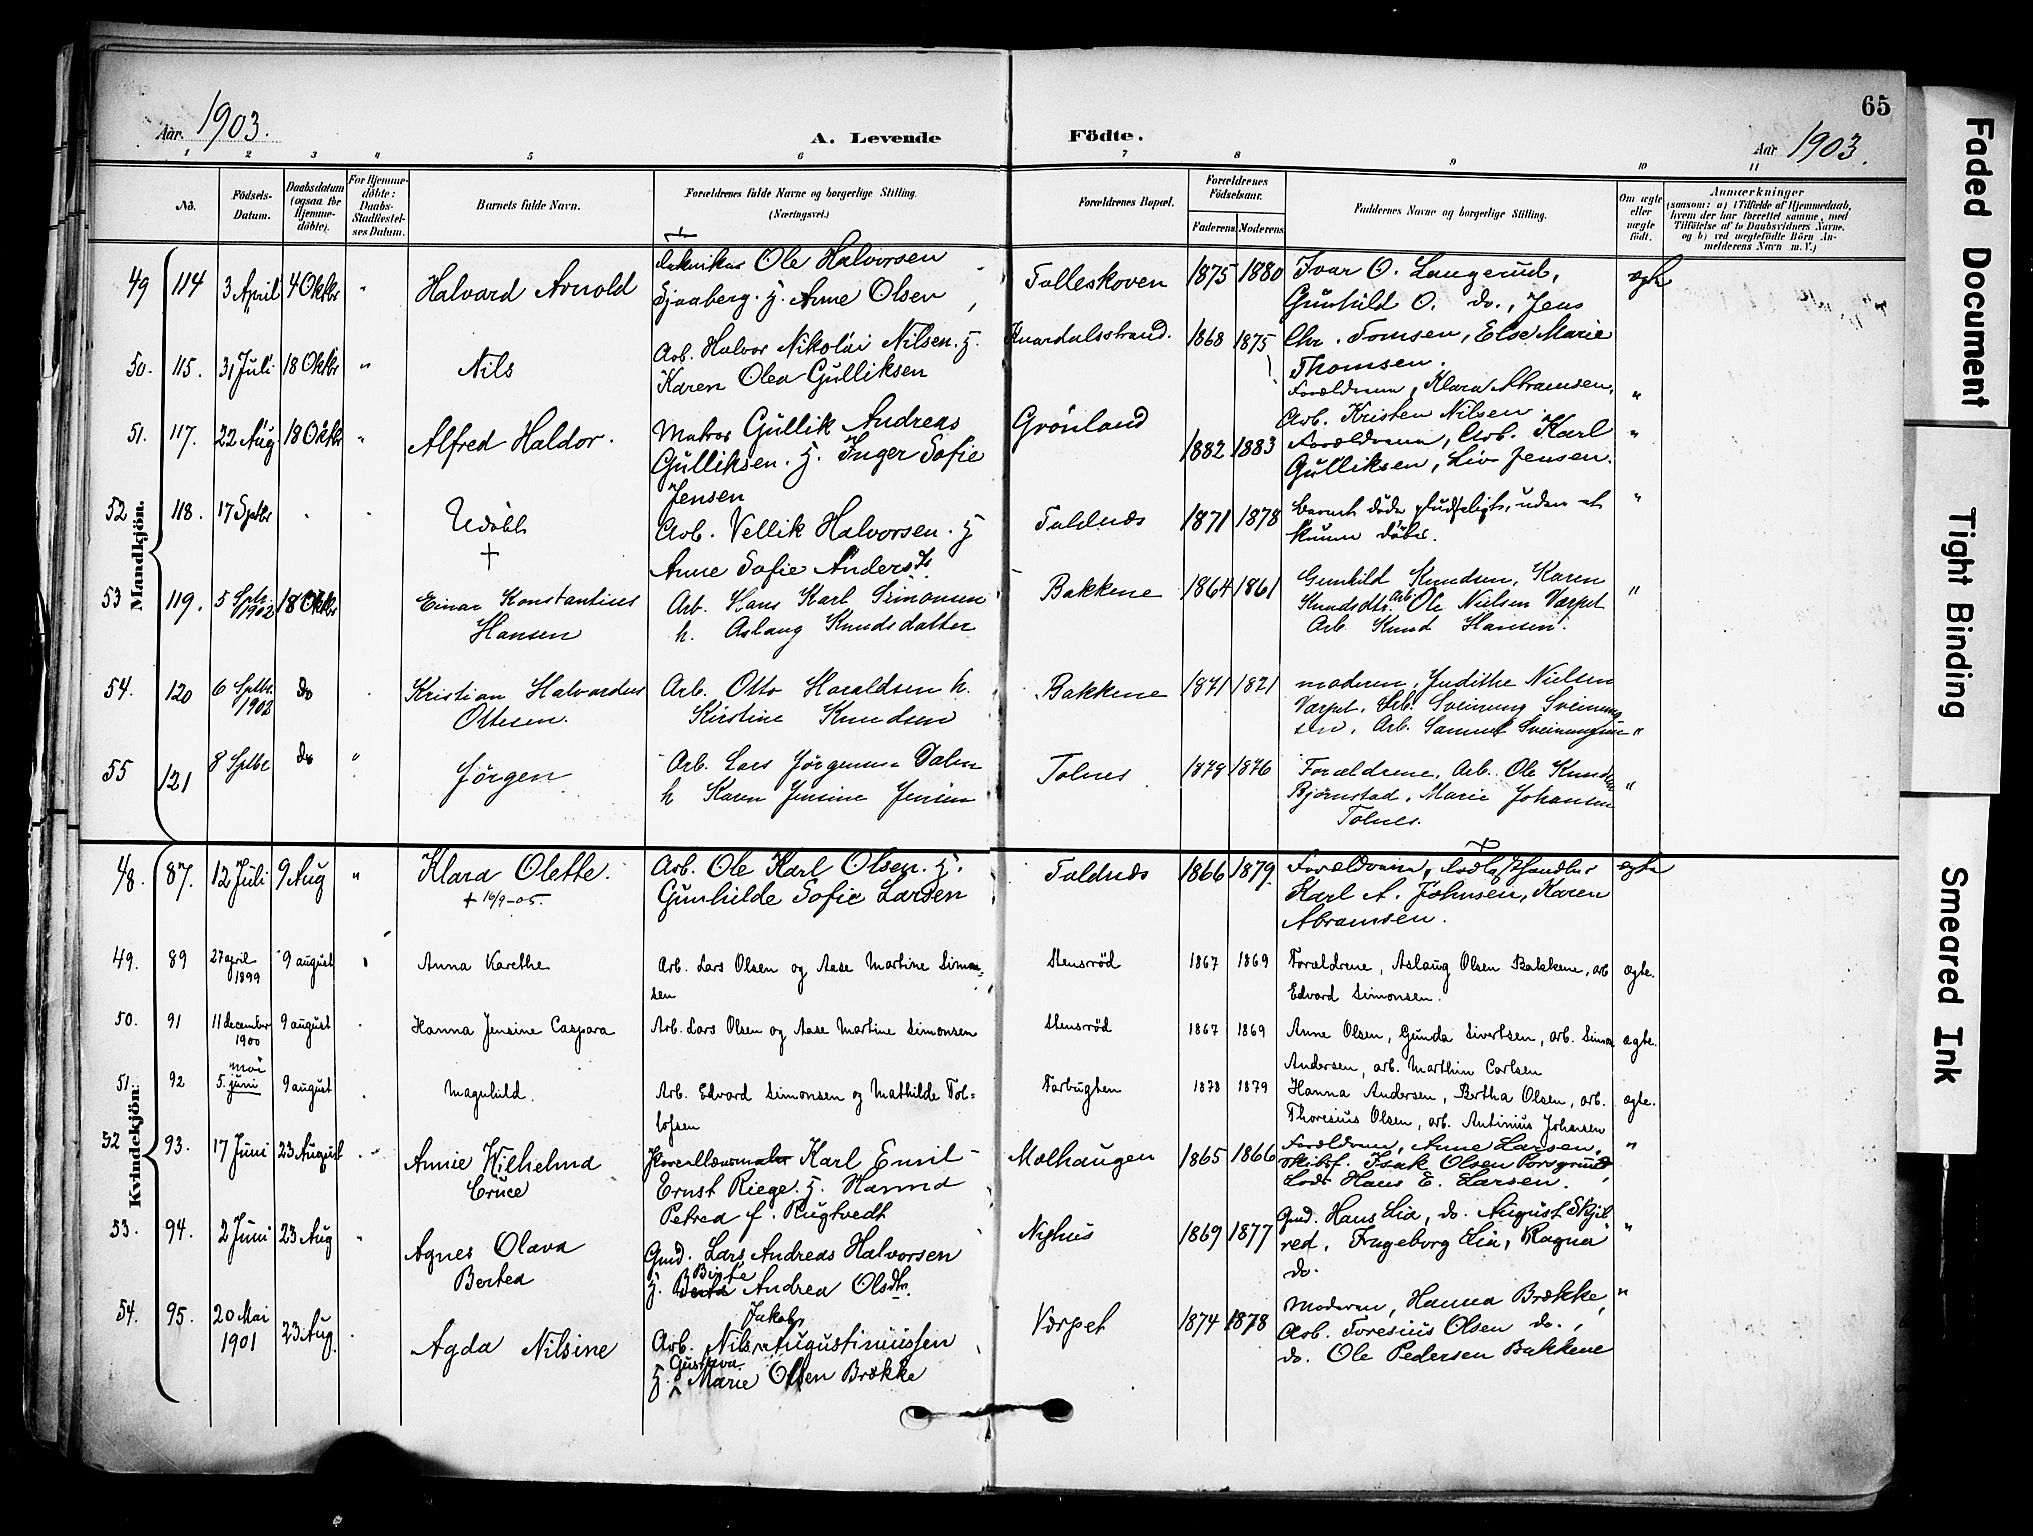 65
Aar. 1903.
A. Levende Födte.
Aar 1903.
1 2 3 4 5 6 7 8 9 10 11
No.
Födsels-Datum.
Daabsdatum (ogsaa for Hjemme-döbte).
For Hjemme-döbte: Daabs-Stadfæstel-ses Datum.
Barnets fulde Navn.
Forældrenes fulde Navne og borgerlige Stilling. (Næringsvei.)
Forældrenes Bopæl.
Forældrenes Födselsaar.
Faderens Moderens
Faddernes Navne og borgerlige Stilling.
Om ægte eller uægte födt.
Anmærkninger
(saasom: a) i Tilfælde af Hjemmedaab, hvem der har forrettet samme, med Tilföielse af to Daabsvidners Navne. og b) ved uægtefödte Börn An-melderens Navn m. V.)
Mandkjön.
49 114 3 April 4 Oktbr " Halvard Arnold
Tekniker Ole Halvorsen
Sjaaberg. H. Anne Olsen
Tolleskoven 1875 1880
Ivar O. Langerud,
Gunhild O. do., Jens
ægte
50. 115. 31 Juli 18 Oktbr " Nils
Arb. Halvor Nikolai Nilsen. H.
Karen Olea Gulliksen
Knardalsstrand. 1868 1875
Chr. Tomsen, Else Marie
Thomsen.
Forældrene, Klara Abramsen,
Arb. Kristen Nilsen.
"
51. 117. 22 Aug 18 Oktbr " Alfred Haldor.
Matros Gullik Andreas
Gulliksen. H. Inger Sofie
Jensen
Grönland 1882 1883
Forældrene, Arb. Karl
Gulliksen, Liv Jensen.
"
52 118. 17 Sptbr . . Udöbt
+
Arb. Vellik Halvorsen. H
Anne Sofie Andersdt.
Toldnæs 1871 1878
Barnet döde pludseligt, uden at
kunne döbes.
"
53 119. 5 Sptb. 1902 18 Oktbr Einar Konstantius
Hansen
Arb. Hans Karl Simonsen
h. Aslaug Knudsdatter
Bakkene 1864 1861
Gunhild Knudsen, Karen
Knudsdtr. arb. Ole Nielsen Værpet
Arb. Knud Hansen.
"
54. 120 6 Sptbr. 1902 do . Kristian Halvardus
Ottesen.
Arb. Otto Haraldsen h.
Kirstine Knudsen
Bakkene 1871 1871
moderen, Judithe Nielsen
Værpet. Arb. Sveinung Sveinung
sen, Arb. Samuel Sveinungsen
"
55 121 8 Sptbr do " Jörgen
Arb. Lars Jörgensen Dalen
h Karen Jensine Jensen
Tolnes 1878 1876
Forældrene, Arb. Ole Knudsen
Bjørnstad, Marie Johansen
Tolnes.
"
Kvindekjön.
48. 87. 12 Juli 9 Aug " Klara Olette.
+ 16/9-05.
Arb. Ole Karl Olsen. H.
Gunhilde Sofie Larsen
Toldnæs 1866 1879.
Forældrene, Handler
Karl A. Johnsen, Karen
Abramsen.
ægte
49. 89 27 april 1899 9 august Anna Karethe
Arb. Lars Olsen og Aase Martine Simon-
sen
Stensrød 1867 1869
Forældrene, Aslaug Olsen Bakkene, arb
Edvard Simonsen.
ægte.
50. 91 11 december 1900 9 august . Hanna Jensine Caspara
Arb. Lars Olsen og Aase Martine Simonsen
Stensrød 1867 1869
Anne Olsen, Gunda Sivertsen, arb. Simon
Andersen, arb. Marthin Carlsen
ægte.
51. 92 5. mai juni 9 august . Magnhild.
Arb. Edvard Simonsen og Mathilde Tol=
lofsen
Torbugten 1878 1879
Hanna Andersen, Bertha Olsen, arb.
Thoresius Olsen, arb. Antinius Johansen
ægte.
52 93. 17 Juni 23 August " Annie Wilhelmd
Cruce
Porcellænsmaler Karl Emil
Ernst Riege. H. Hanna
Petrea f. Rugtvedt
Molhaugen 1865 1866
Forældrene, Anne Larsen,
skibsf. Isak Olsen Porsgrund,
Lods Hans E. Larsen.
"
53. 94. 2 Juni 23 Aug " Agnes Olava
Bertea
Gmd. Lars Andreas Halvorsen
H. Berta Birte Andrea Olsdtr.
Nyhus 1869 1877
Gmd. Hans Lia, do. August Skjel
red, Ingeborg Lia, Ragna
do.
"
54. 95. 20 Mai 1901 23 Aug . Agda Nilsine
Jakobs
Arb. Nils Augustinussen
H. Gustava Marie Olsen Brække
Værpet 1874 1878
Moderen, Hanna Brække,
Arb. Toresius Olsen do.,
do. Ole Pedersen Bakkene
"
Faded Document
Tight Binding
Smeared Ink